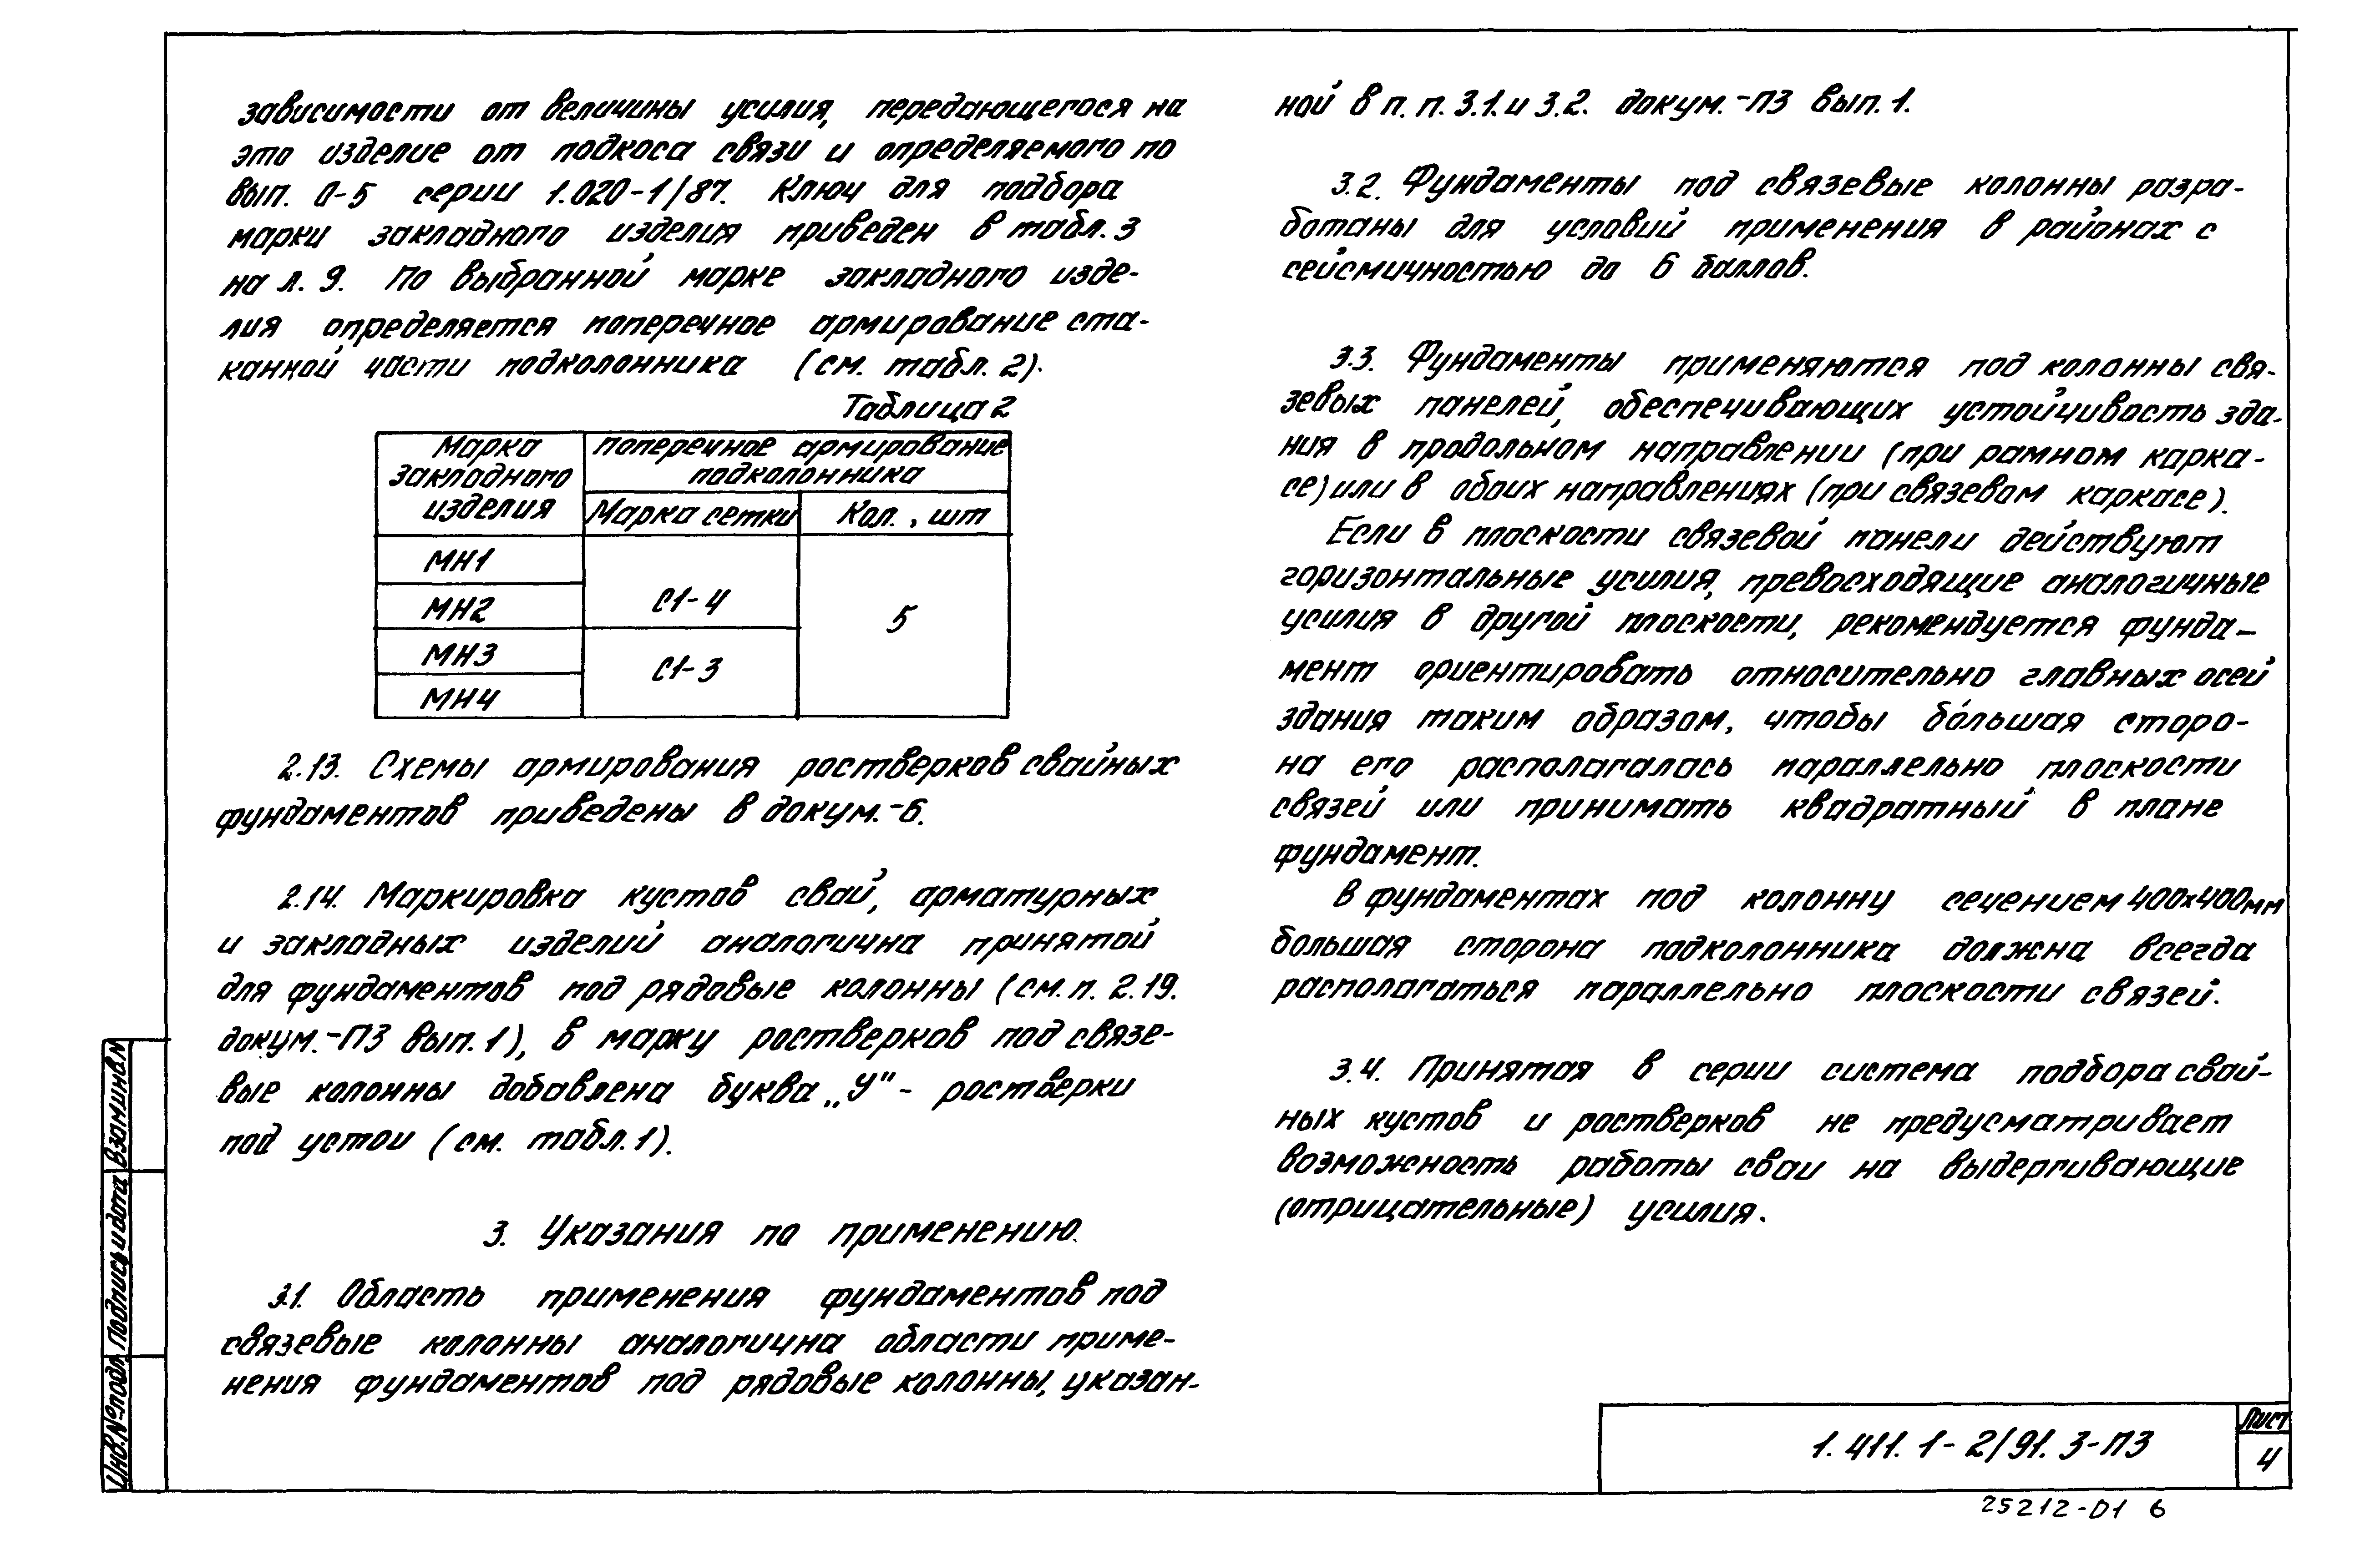 зависимости от величины усилия, передающегося на
это изделие от подкоса связи и определяемого по
вып. 0-5 серии 1.020-1/87. Ключ для подбора
марки закладного изделия приведен в табл. 3
на л. 9. По выбранной марке закладного изде-
лия определяется поперечное армирование ста-
канной части подколонника (см. табл. 2).
Таблица 2
Марка закладного изделия
поперечное армирование подколонника
Марка сетки
Кол., шт
МН1
МН2
МН3
МН4
С1-4
С1-3
5
2.13. Схемы армирования ростверков свайных
фундаментов приведены в докум.-6.
2.14. Маркировка кустов свай, арматурных
и закладных изделий аналогична принятой
для фундаментов под рядовые колонны (см. п. 2.19.
докум.-ПЗ вып. 1), в марку ростверков под связе-
вые колонны добавлена буква „У" - ростверки
под устои (см. табл. 1).
3. Указания по применению.
3.1. Область применения фундаментов под
связевые колонны аналогична области приме-
нения фундаментов под рядовые колонны, указан-
ной в п. п. 3.1. и 3.2. докум.-ПЗ вып. 1.
3.2. Фундаменты под связевые колонны разра-
ботаны для условий применения в районах с
сейсмичностью до 6 баллов.
3.3. Фундаменты применяются под колонны свя-
зевых панелей, обеспечивающих устойчивость зда-
ния в продольном направлении (при рамном карка-
се) или в обоих направлениях (при связевом каркасе).
Если в плоскости связевой панели действуют
горизонтальные усилия, превосходящие аналогичные
усилия в другой плоскости, рекомендуется фунда-
мент ориентировать относительно главных осей
здания таким образом, чтобы бо́льшая сторо-
на его располагалась параллельно плоскости
связей или принимать квадратный в плане
фундамент.
В фундаментах под колонну сечением 400х400мм
большая сторона подколонника должна всегда
располагаться параллельно плоскости связей.
3.4. Принятая в серии система подбора свай-
ных кустов и ростверков не предусматривает
возможность работы сваи на выдергивающие
(отрицательные) усилия.
Инв. № подл.
Подпись и дата
Взам инв. N
1. 411. 1- 2/91. 3-ПЗ
Лист
4
25212-01 6